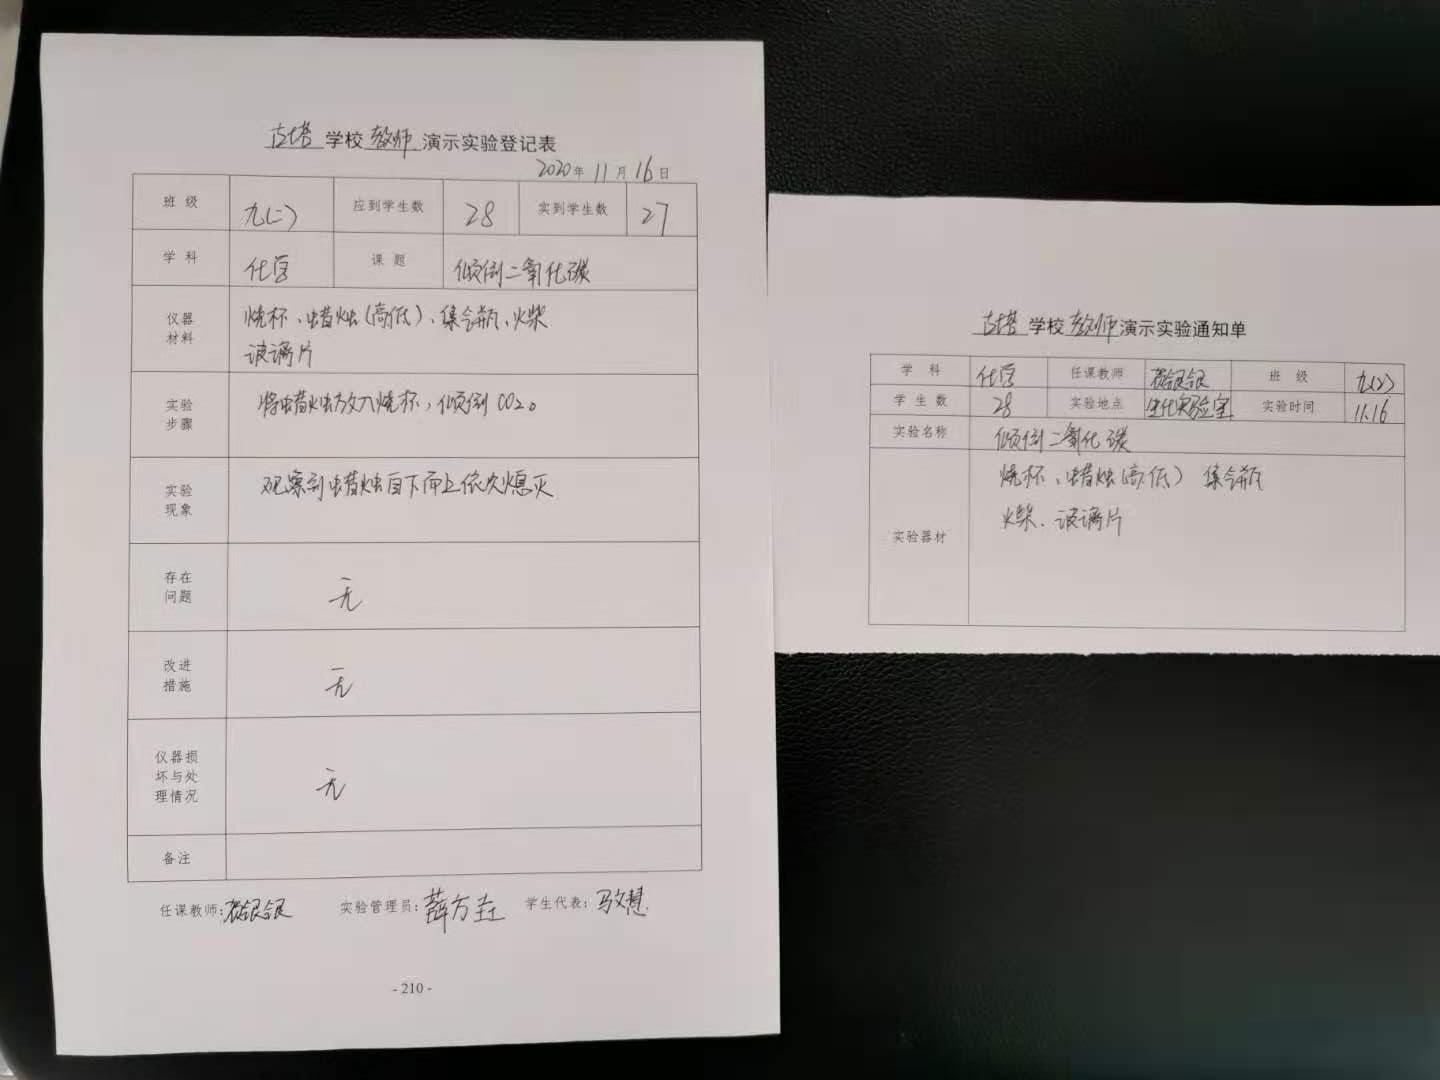 古塔 学校 教师 演示实验登记表
2020年 11月 16日
班级 九(二) 应到学生数 28 实到学生数 27
学科 化学 课题 倾倒二氧化碳
仪器材料 烧杯、蜡烛(高低)、集气瓶、火柴
玻璃片
实验步骤 将蜡烛放入烧杯,倾倒CO2。
实验现象 观察到蜡烛自下而上依次熄灭
存在问题 无
改进措施 无
仪器损坏与处理情况 无
备注
任课教师: 实验管理员:薛方 学生代表:马文慧
- 210 -
古塔 学校 教师 演示实验通知单
学科 化学 任课教师 班级 九(2)
学生数 28 实验地点 生化实验室 实验时间 11.16
实验名称 倾倒二氧化碳
实验器材 烧杯、蜡烛(高低) 集气瓶
火柴、玻璃片